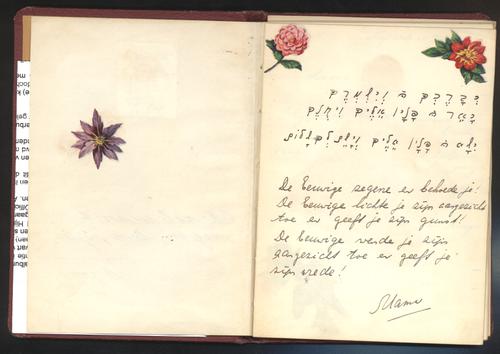 יְבָרֶכְךָ ה וְיִשְׁמְרֶךָ
יָאֵר ה פָּנָיו אֵלֶיךָ וִיחֻנֶּךָ
יִשָּׂא ה פָּנָיו אֵלֶיךָ וְיָשֵׂם לְךָ שָׁלוֹם
De Eeuwige zegene en behoede je!
De Eeuwige lichte je zijn aangezicht
toe en geeft je zijn gunst!
De Eeuwige wende je zijn
aangezicht toe en geeft je
zijn vrede!
Mama